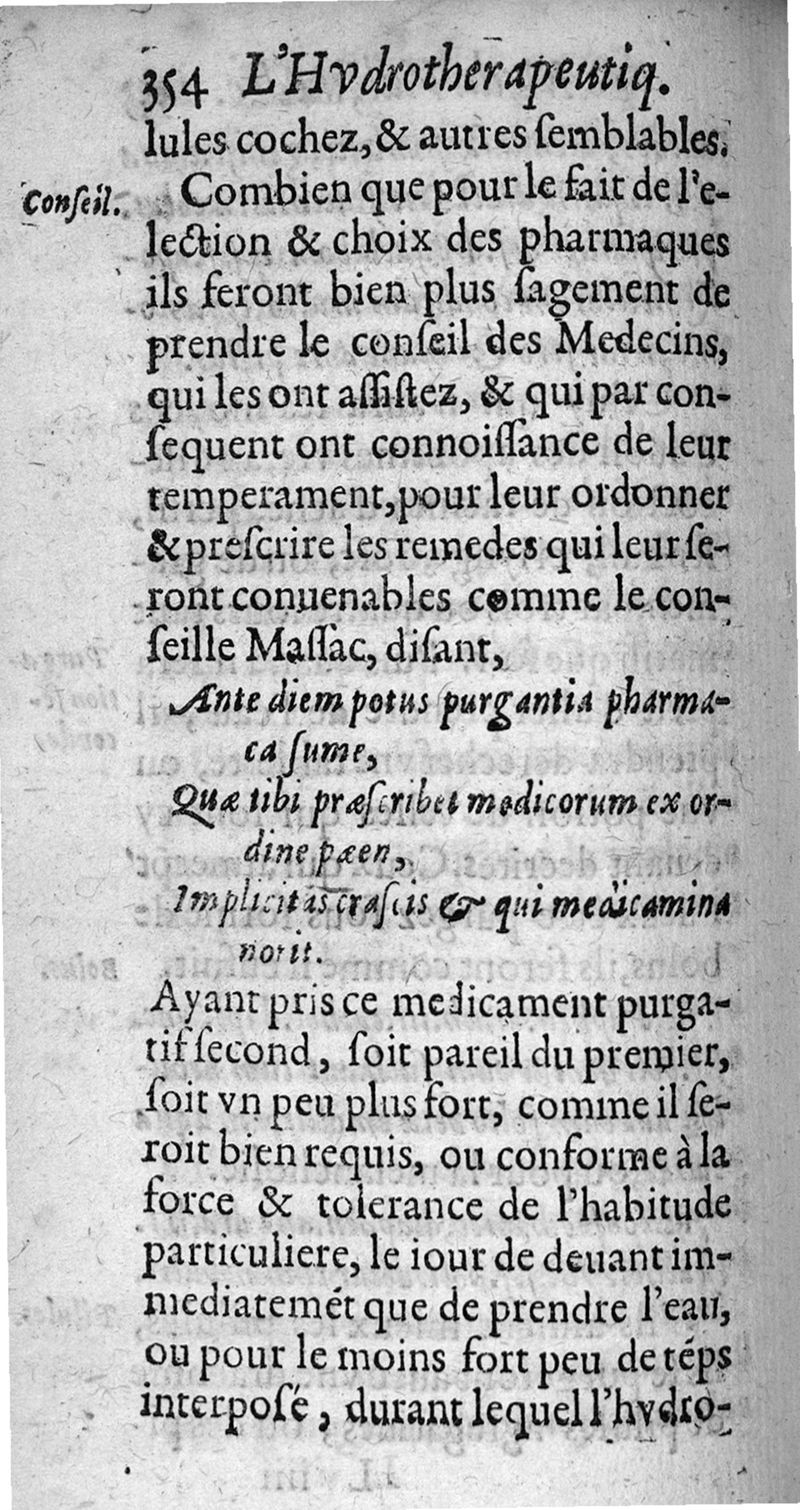 354 L'Hvdrotherapeutiq.
lules cochez, & autres ſemblables.
Conſeil.
Combien que pour le fait de l'e-
lection & choix des pharmaques
ils feront bien plus ſagement de
prendre le conſeil des Medecins,
qui les ont aſſiſtez, & qui par con-
ſequent ont connoiſſance de leur
temperament, pour leur ordonner
& preſcrire les remedes qui leur ſe-
ront conuenables comme le con-
ſeille Maſſac, diſant,
Ante diem potus purgantia pharma-
ca ſume,
Quæ tibi præſcribet medicorum ex or-
dine pæen,
Implicitas craſcis & qui medicamina
norit.
Ayant pris ce medicament purga-
tif ſecond, ſoit pareil du premier,
ſoit vn peu plus fort, comme il ſe-
roit bien requis, ou conforme à la
force & tolerance de l'habitude
particuliere, le iour de deuant im-
mediatemét que de prendre l'eau,
ou pour le moins fort peu de téps
interpoſé, durant lequel l'hvdro-